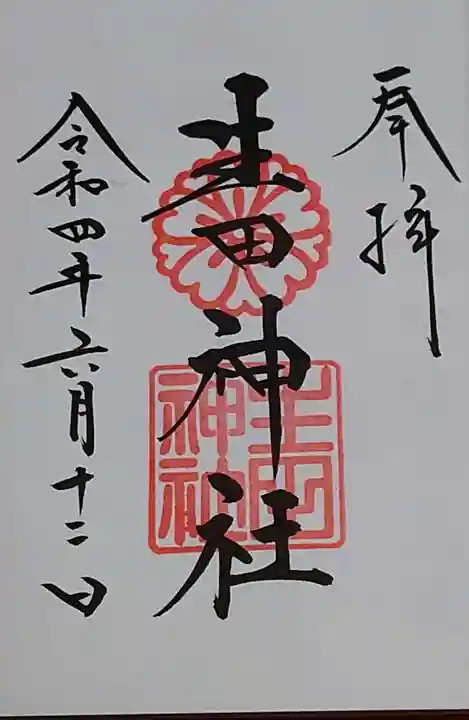 奉拝
生田神社
生田
神社
令和四年六月十二日